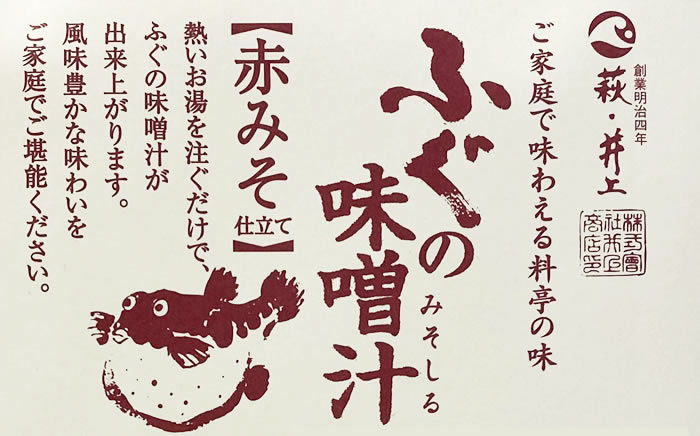 創業明治四年
萩・井上
株式會
社井上
商店印
ご家庭で味わえる料亭の味
ふぐの
味噌汁
みそしる
【赤みそ仕立て】
熱いお湯を注ぐだけで、
ふぐの味噌汁が
出来上がります。
風味豊かな味わいを
ご家庭でご堪能ください。